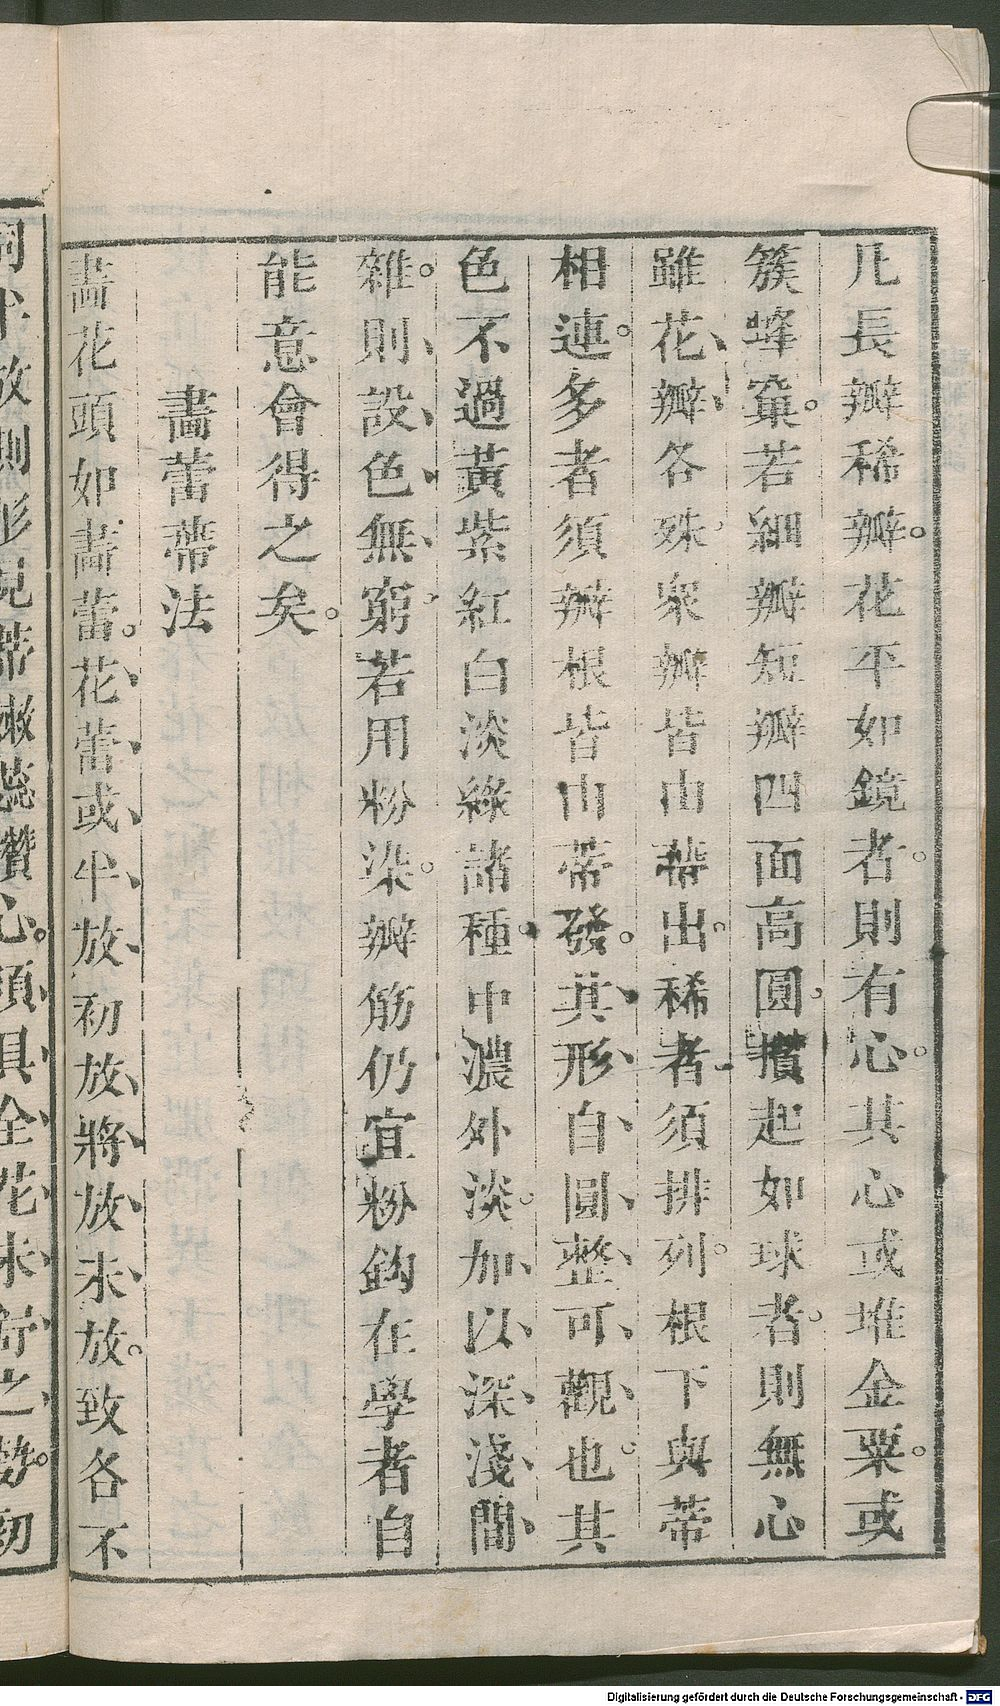 凡長瓣稀瓣。花平如鏡者。則有心。其心或堆金粟。或
簇蜂窠。若細瓣短瓣。四面高圓。攢起如球者。則無心
雖花瓣各殊。衆瓣皆由蒂出。稀者須排列。根下與蒂
相連。多者須瓣根皆由蒂發。其形自圓整可觀也。其
色不過黃紫紅白淡綠諸種。中濃外淡。加以深淺間
雜。則設色無窮。若用粉染。瓣筋仍宜粉鈎。在學者自
能意會得之矣。
畫蕾蒂法
畫花頭如畫蕾。花蕾或半放初放將放未放。致各不
放則形見蒂嫩蕊攢心。須具全花未舒之勢。初
Digitalisierung gefördert durch die Deutsche Forschungsgemeinschaft - DFG